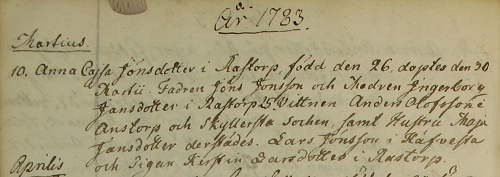 År 1783.
Martius.
10. Anna Cajsa Jönsdotter i Rastorp, född den 26. döptes den 30
Martii. Fadren Jöns Jonsson och Modren Ingerborg
Jansdotter i Rastorp 25. Vittnen Anders Olofsson i
Anstorp och Skyllersta Sochen, samt Hustru Maja
Jansdotter derstädes. Lars Jönsson i Häfvesta
Aprilis och Pigan Kerstin Larsdotter i Rastorp.